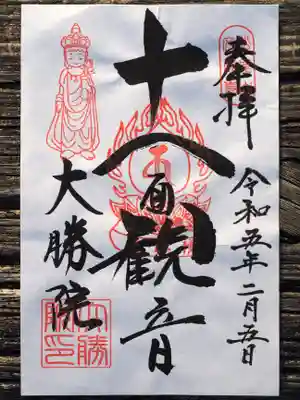 奉拝
令和五年二月五日
十一面観音
大勝院